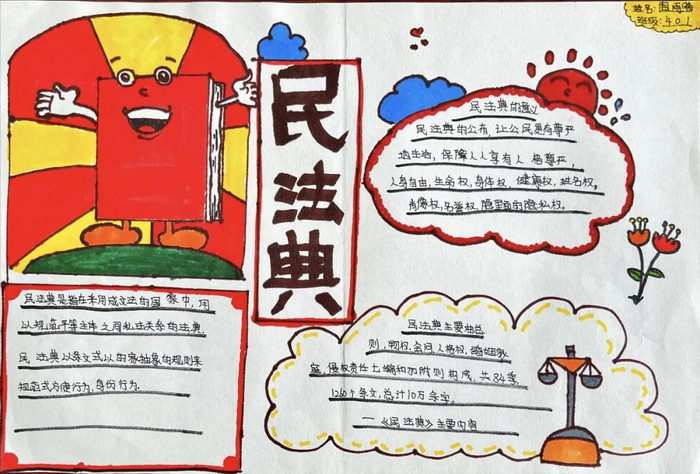 姓名:
班级:401
民法典
民法典的意义
民法典的公布，让公民更有尊严
地生活，保障人人享有人格尊严，
人身自由，生命权，身体权，健康权，姓名权。
肖像权，名誉权，隐私权。
民法典是指在采用成文法的国家中，用
以规范平等主体之间私法关系的法典
民法典以条文式以的抽象的规则来
规范式方使行为，身份行为.
民法典主要由总
则，物权，合同人格权，婚姻家
庭，侵权责任七编和附则构成，共84章，
1260个条文，总计10万余字。
—《民法典》主要内容